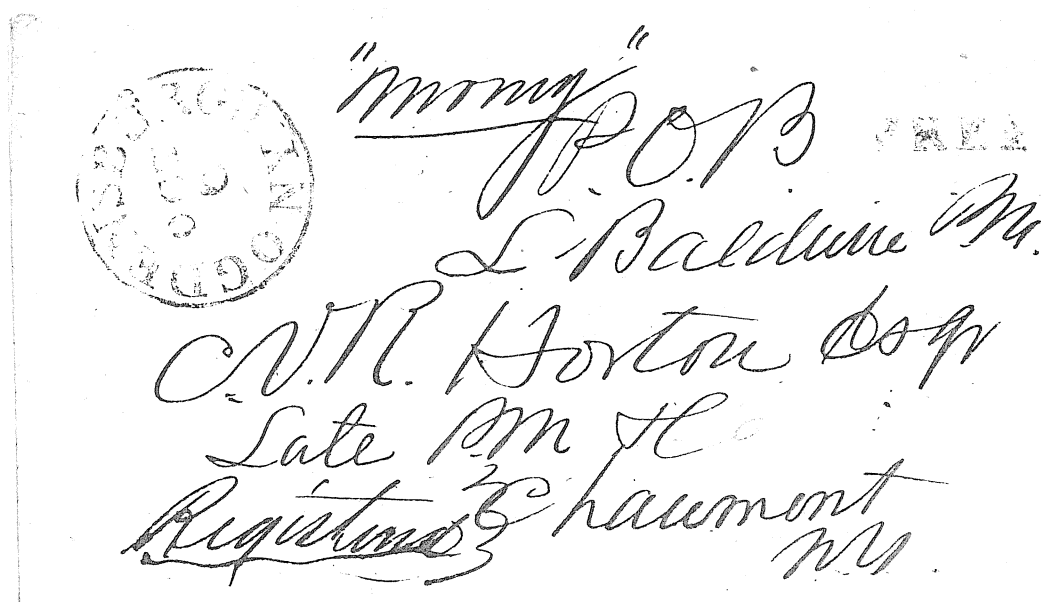 "Money" P.O.B
FREE
OGDENSBURGH N
L Baldwin Pm.
C.V.R. Horton Esqr
Late P.M &c
Registered Chaumont
N.Y.